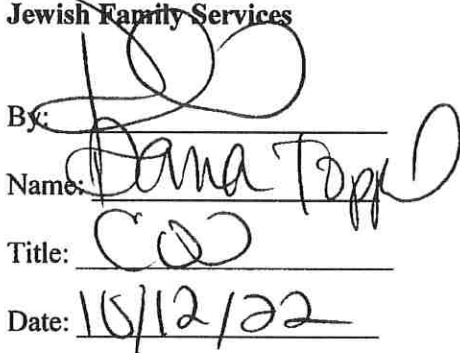 Jewish Family Services
By:
Name: Dana Toppel
Title: COO
Date: 10/12/22